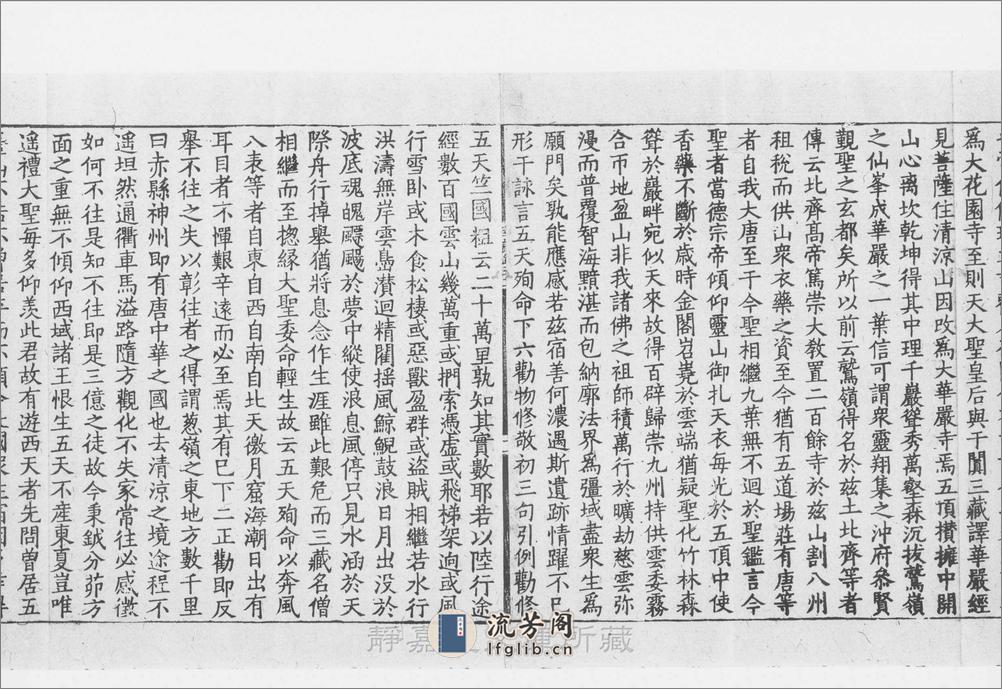 爲大花園寺至則天大聖皇后與于闐三藏譯華嚴經
見菩薩住清涼山因改爲大華嚴寺焉五頂攢擁中開
山心离坎乾坤得其中理千巖聳秀萬壑森沉拔鷲嶺
之仙峯成華嚴之一葉信可謂衆靈翔集之沖府叅賢
觀聖之玄都矣所以前云鷲嶺得名於兹土北齊等者
傳云北齊髙帝篤崇大教置二百餘寺於兹山割八州
租稅而供山衆衣藥之資至今猶有五道場莊有唐等
者自我大唐至于今聖相繼九葉無不迴於聖鑑言今
聖者當德宗帝傾仰靈山御札天衣每光於五頂中使
香藥不斷於歲時金閣岧嶤於雲端猶疑聖化竹林森
聳於巖畔宛似天來故得百辟歸崇九州持供雲委霧
合帀地盈山非我諸佛之祖師積萬行於曠劫慈雲弥
漫而普覆智海黯湛而包納廓法界爲彊域盡衆生爲
願門矣孰能應感若兹宿善何濃遇斯遺跡情躍不已
形于詠言五天殉命下六勸物修敬初三句引例勸修
五天竺國粗云二十萬里孰知其實數耶若以陸行途
經數百國雲山幾萬重或捫索憑虚或飛梯架逈或風
行雪卧或木食松棲或惡獸盈群或盜賊相繼若水行
洪濤無岸雲島潛迴精闍揺風鯨鯢鼓浪日月出没於
波底魂魄飄颺於夢中縱使浪息風停只見水涵於天
際舟行掉舉猶將息念作生涯雖此艱危而三藏名僧
相繼而至揔緑大聖委命輕生故云五天殉命以奔風
八表等者自東自西自南自北天徼月窟海潮日出有
耳目者不憚艱辛遠而必至焉其有巳下二正勸即反
舉不往之失以彰往者之得謂葱嶺之東地方數千里
曰赤縣神州即有唐中華之國也去清涼之境途程不
遥坦然通衢車馬溢路隨方觀化不失家常往必感徵
如何不往是知不往即是三億之徒故今秉鉞分茆方
面之重無不傾仰西域諸王恨生五天不産東夏豈唯
遥禮大聖每多仰羡此君故有遊西天者先問曾居五
静嘉堂文庫所藏
流芳阁
lfglib.cn